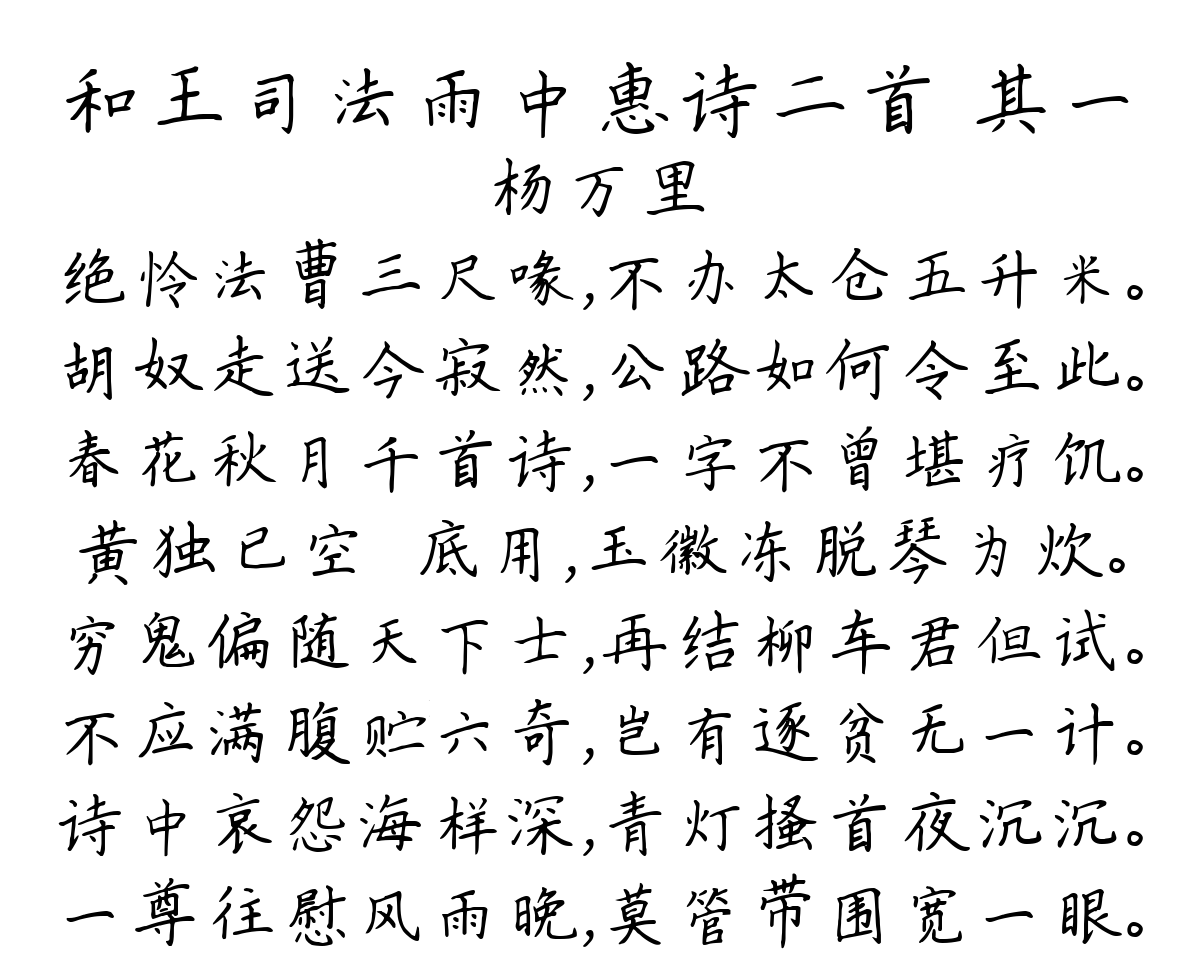 和王司法雨中惠诗二首 其一
杨万里
绝怜法曹三尺喙,不办太仓五升米。
胡奴走送今寂然,公路如何令至此。
春花秋月千首诗,一字不曾堪疗饥。
黄独已空 底用,玉徽冻脱琴为炊。
穷鬼偏随天下士,再结柳车君但试。
不应满腹贮六奇,岂有逐贫无一计。
诗中哀怨海样深,青灯搔首夜沉沉。
一尊往慰风雨晚,莫管带围宽一眼。